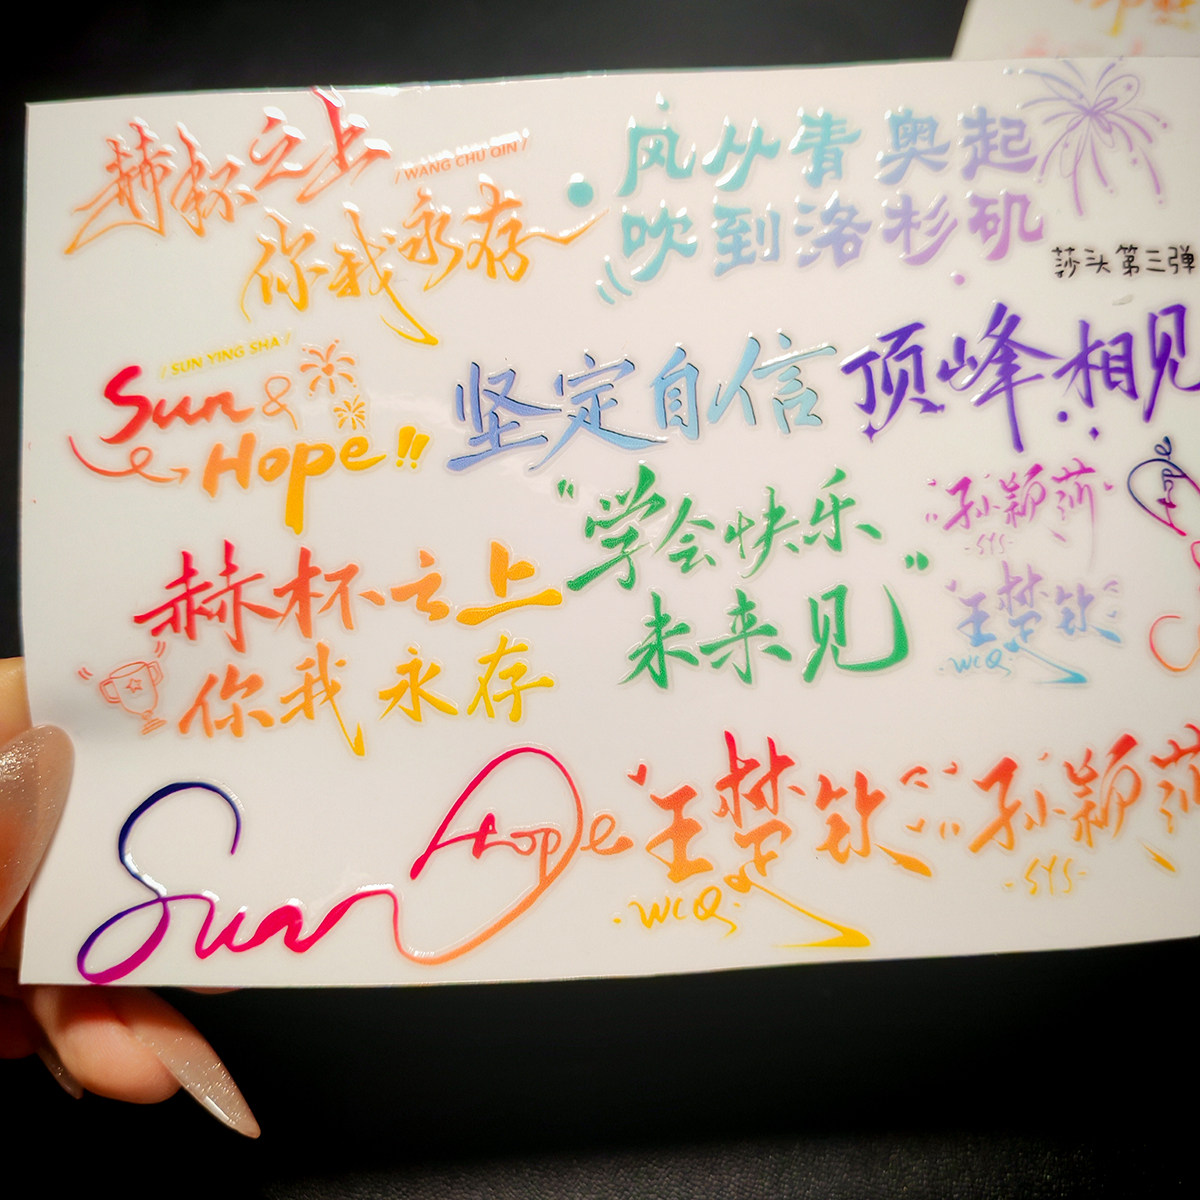 赫杯之上
/ WANG CHU QIN /
你我永存
风从青奥起
吹到洛杉矶
莎头第三弹
/ SUN YING SHA /
Sun &
Hope!!
坚定自信
顶峰相见
"学会快乐
未来见"
孙颖莎
-SYS-
王楚钦
·WCQ·
赫杯之上
你我永存
Sun
Hope
王楚钦
·WCQ·
孙颖莎
-SYS-